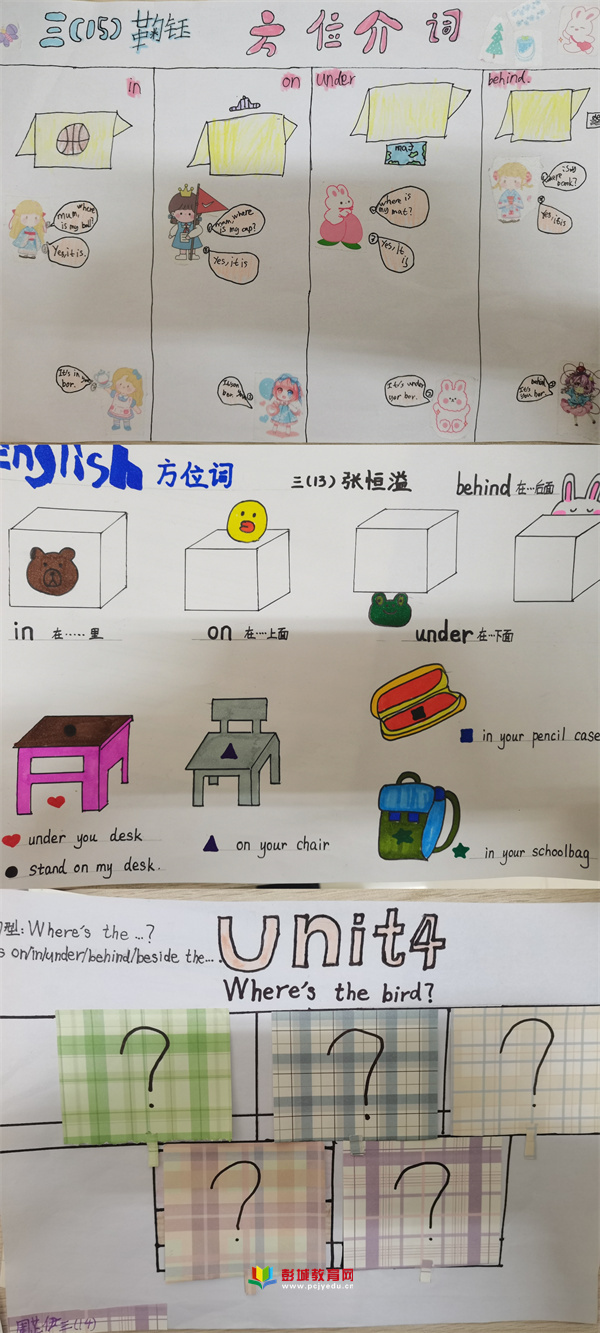 三(15) 鞠钰
方位介词
in
on
under
behind.
mat
mum, where
is my ball?
Yes, it is.
mum, where
is my cap?
Yes, it is
where is
my mat?
Yes, it
is
Yes, it is
It's in
bor.
It's on
bor.
It's under
your bor.
It's behind
your bor.
English 方位词
三(13) 张恒溢
behind 在…后面
in 在……里
on 在…上面
under 在…下面
in your pencil case
under you desk
on your chair
stand on my desk.
in your schoolbag
型: Where's the …?
s on/in/under/behind/beside the….
Unit4
Where's the bird?
?
?
?
?
?
彭城教育网
www.pcjyedu.cn
三(14)